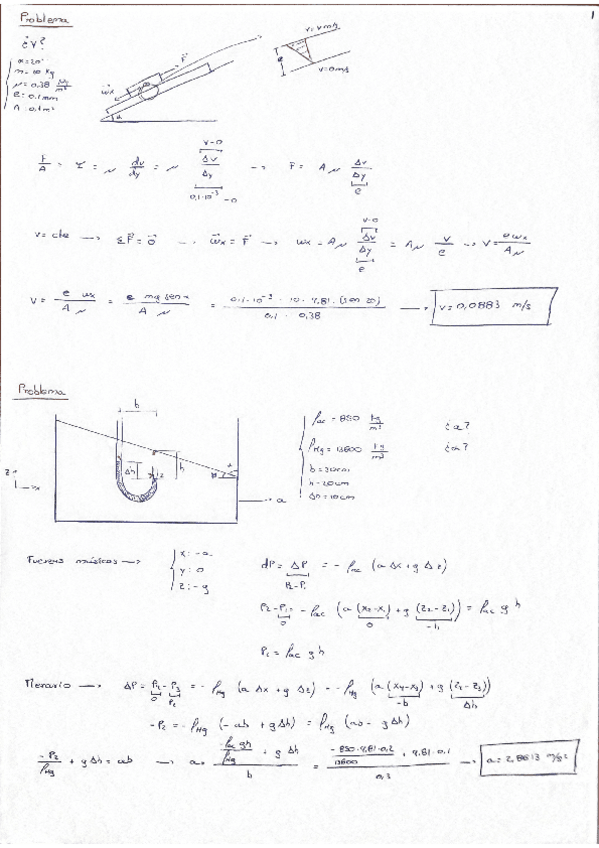 1
Problema
¿v?
α = 20°
m = 10 Kg
μ = 0,38
e = 0,1 mm
A = 0,1 m²
F
wx
α
v = v m/s
e
v = 0 m/s
F/A = τ = μ dv/dy = μ Δv/Δy → F = A μ Δv/Δy
v-0
0,1·10⁻³-0
e
v = cte → ΣF = 0 → wx = F → wx = A μ Δv/Δy = A μ v/e → v = e wx/A μ
v-0
e
v = e wx/A μ = e mg sen α/A μ = 0,1·10⁻³ · 10 · 9,81 · (sen 20)/0,1 · 0,38 → v = 0,0883 m/s
Problema
b
Δh
h
α
z
x
a
ρac = 850 kg/m³
ρHg = 13600 kg/m³
b = 30 cm
h = 20 cm
Δh = 10 cm
¿a?
¿α?
Fuerzas másicas →
x: -a
y: 0
z: -g
dP = ΔP = -ρac (a Δx + g Δz)
P2-P1
P2-P1 = -ρac (a (x2-x1) + g (z2-z1)) = ρac g h
0
0
-h
P2 = ρac g h
Mercurio → ΔP = P4 - P3 = -ρHg (a Δx + g Δz) = -ρHg (a(x4-x3) + g (z4-z3))
0
P2
-b
Δh
-P2 = -ρHg (-ab + gΔh) = ρHg (ab - gΔh)
-P2/ρHg + gΔh = ab → a = (-ρac gh/ρHg + g Δh)/b = (-850·9,81·0,2/13600 + 9,81·0,1)/0,3 → a = 2,8613 m/s²